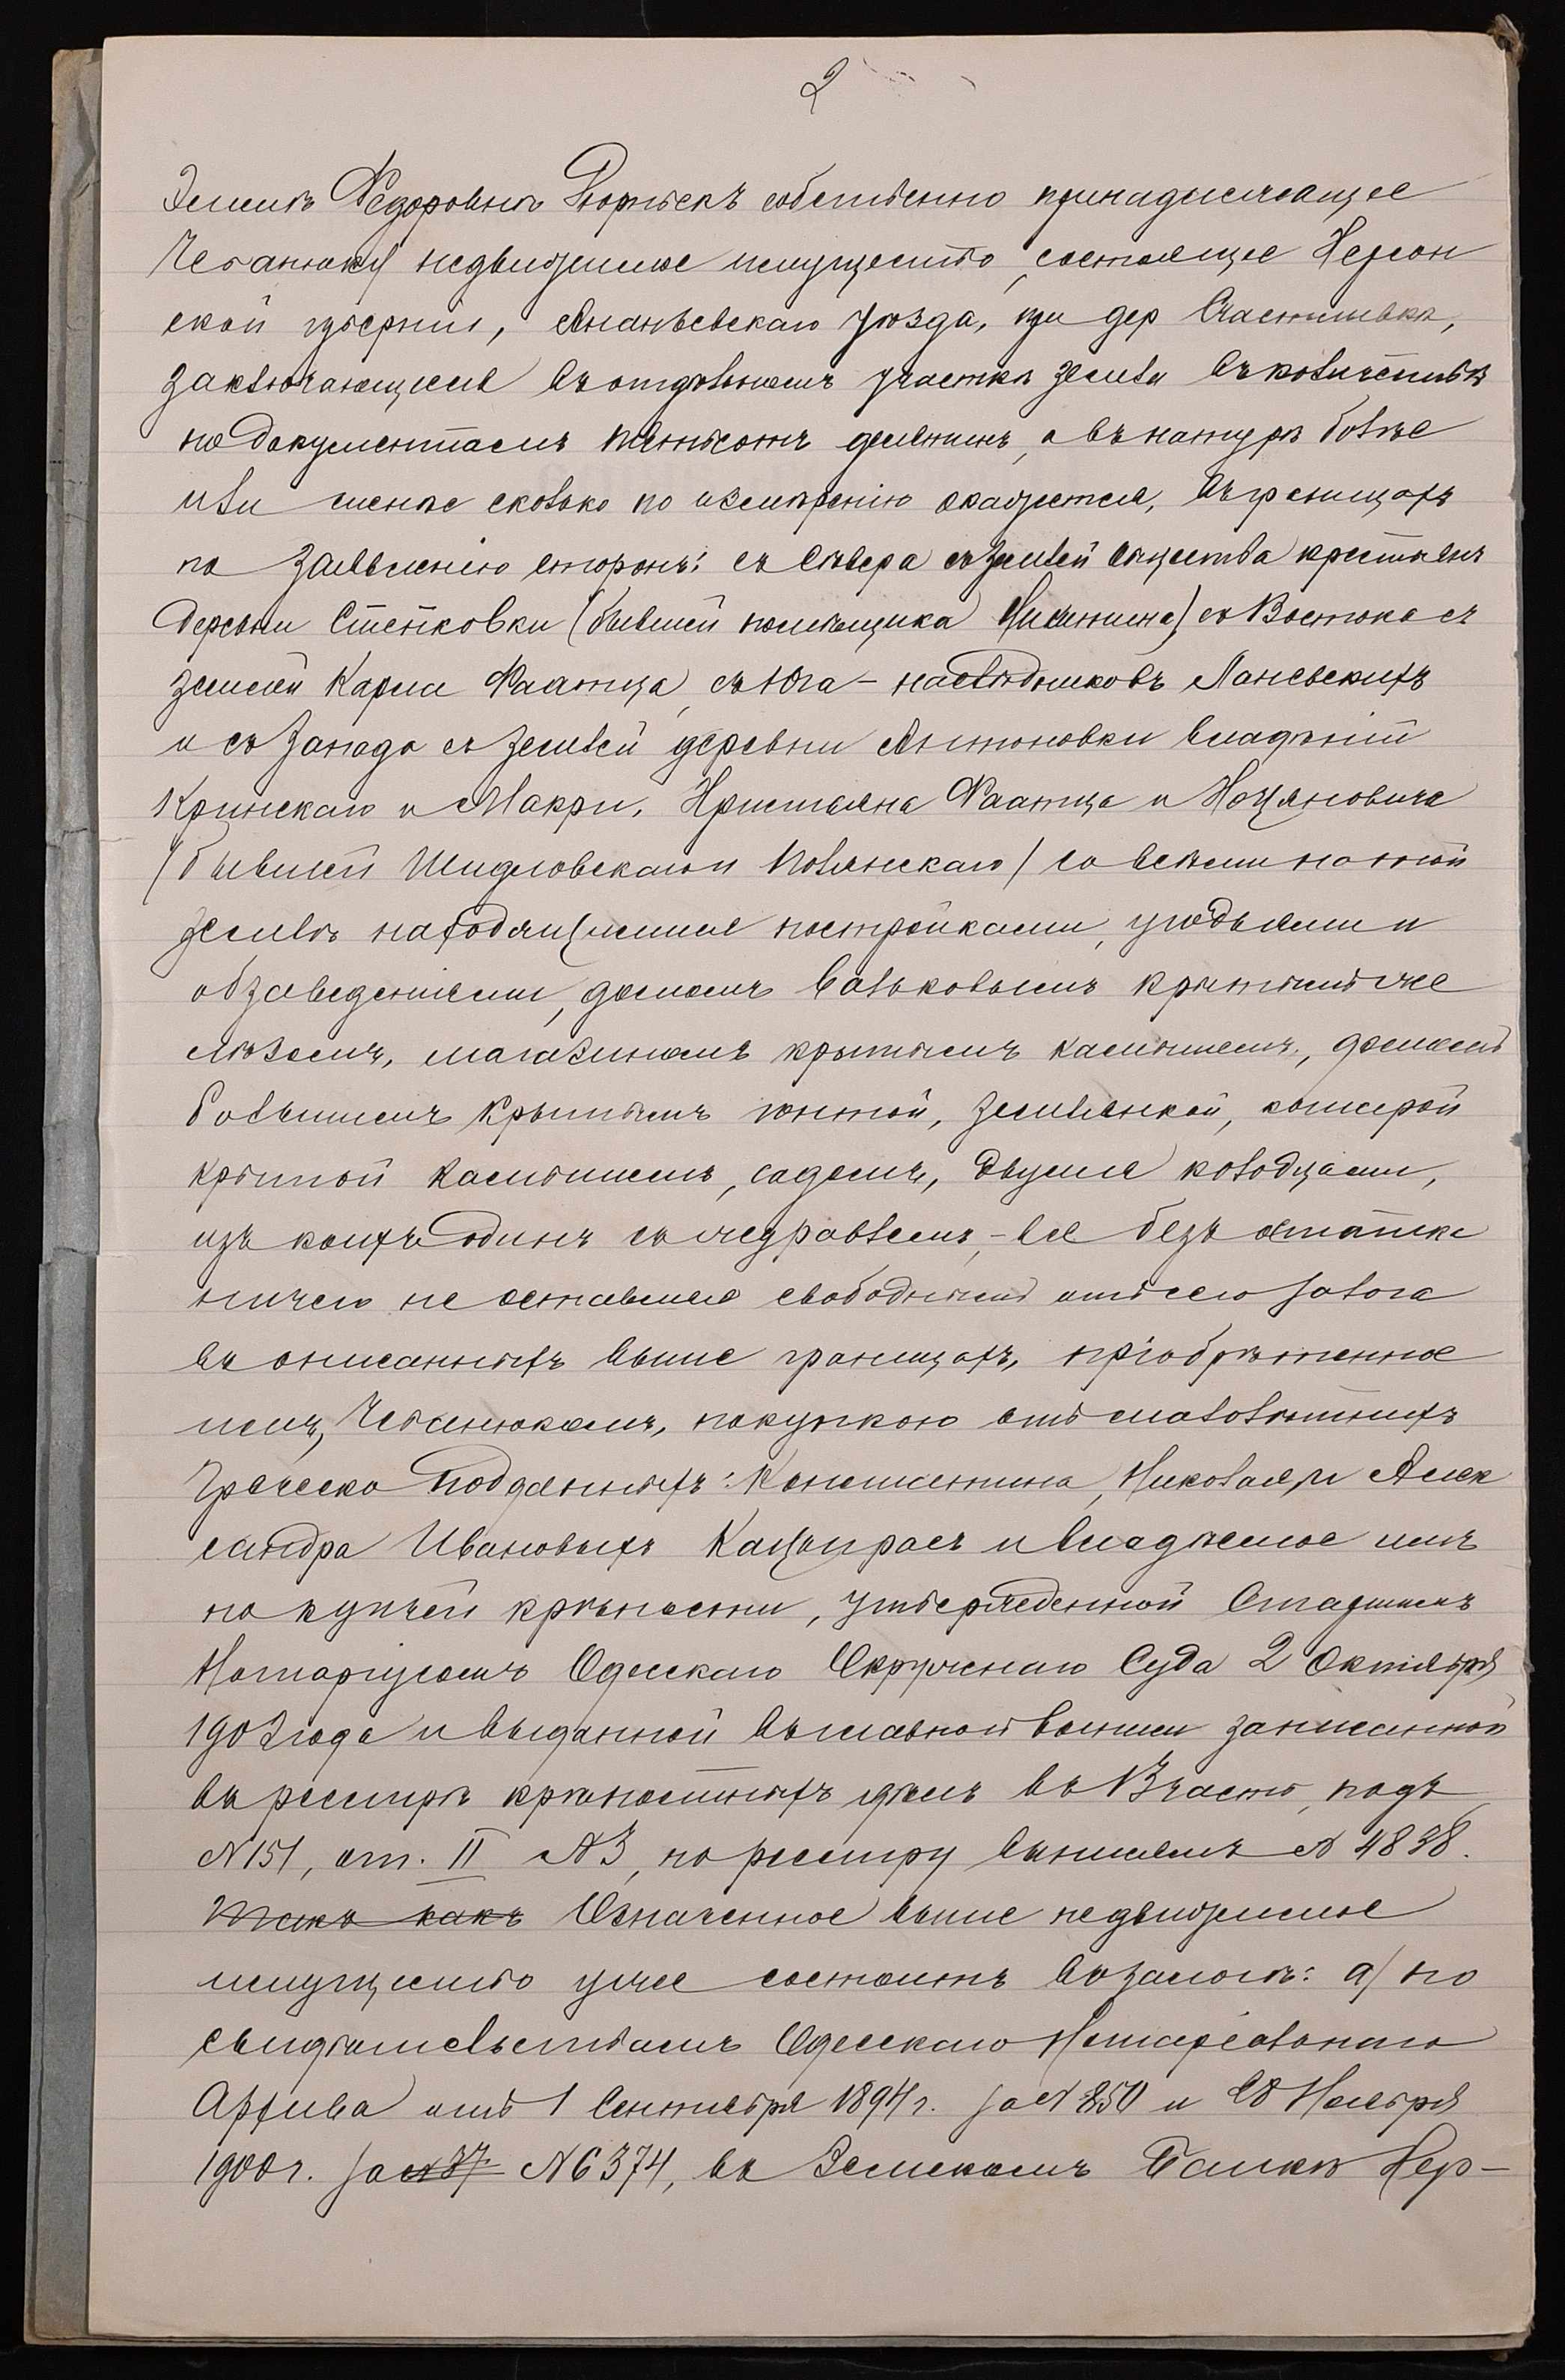 2
Эмилъ Федоровнъ Рюрикъ собственно принадлежащее
Чебанюку недвижимое имущество, состоящее Херсон
ской губерніи, Ананьевскаго уѣзда, при дер Счастливкѣ,
заключающееся въ отдѣльномъ участкѣ земли въ количествѣ
по документамъ пятьсотъ десятинъ, а въ натурѣ болѣе
или менѣе сколько по измѣренію окажется, въ границахъ
по заявленію сторонъ: съ Сѣвера съ землей общества крестьянъ
деревни Степковки (бывшей помѣщика) съ Востока съ
землей Карла Фаатца, съ Юга – наслѣдниковъ Паневскихъ
и съ Запада съ землей деревни Антоновки владѣній
Кринскаго и Макри, Христьяна Фаатца и
(бывшей Шидловскаго и Полянскаго) со всѣми на той
землѣ находящимися постройками, угодьями и
обзаведеніями, домомъ вальковымъ крытымъ же
лѣзомъ, магазиномъ крытымъ камышемъ, домомъ
большимъ крытымъ гонтой, землянкой, которой
крытой камышемъ, садомъ, двумя колодцами,
изъ коихъ одинъ съ журавлемъ, – все безъ остатка
ничего не оставляя свободнымъ отъ сего залога
въ описанныхъ выше границахъ, пріобрѣтенное
имъ, Чебанюкомъ, покупкою отъ малолѣтнихъ
Греческо подданныхъ: Константина, Николая, и Алек
сандра Ивановыхъ Кацыпрасъ и владѣемое имъ
по купчей крѣпости, утвержденной Старшимъ
Нотаріусомъ Одесскаго Окружнаго Суда 2 Октября
1902 года и выданной выписи записанной
въ реестрѣ крѣпостныхъ дѣлъ въ части, подъ
№ 151, от. II № 3, по реестру выписямъ № 4838.
Такъ какъ Означенное выше недвижимое
имущество уже состоитъ въ залогѣ: а) по
свидѣтельствамъ Одесскаго Нотаріальнаго
Архива отъ 1 Сентября 1894 г. за № 850 и 28 Ноября
1900 г. за № 37 № 6374, въ Земскомъ Банкѣ Хер-